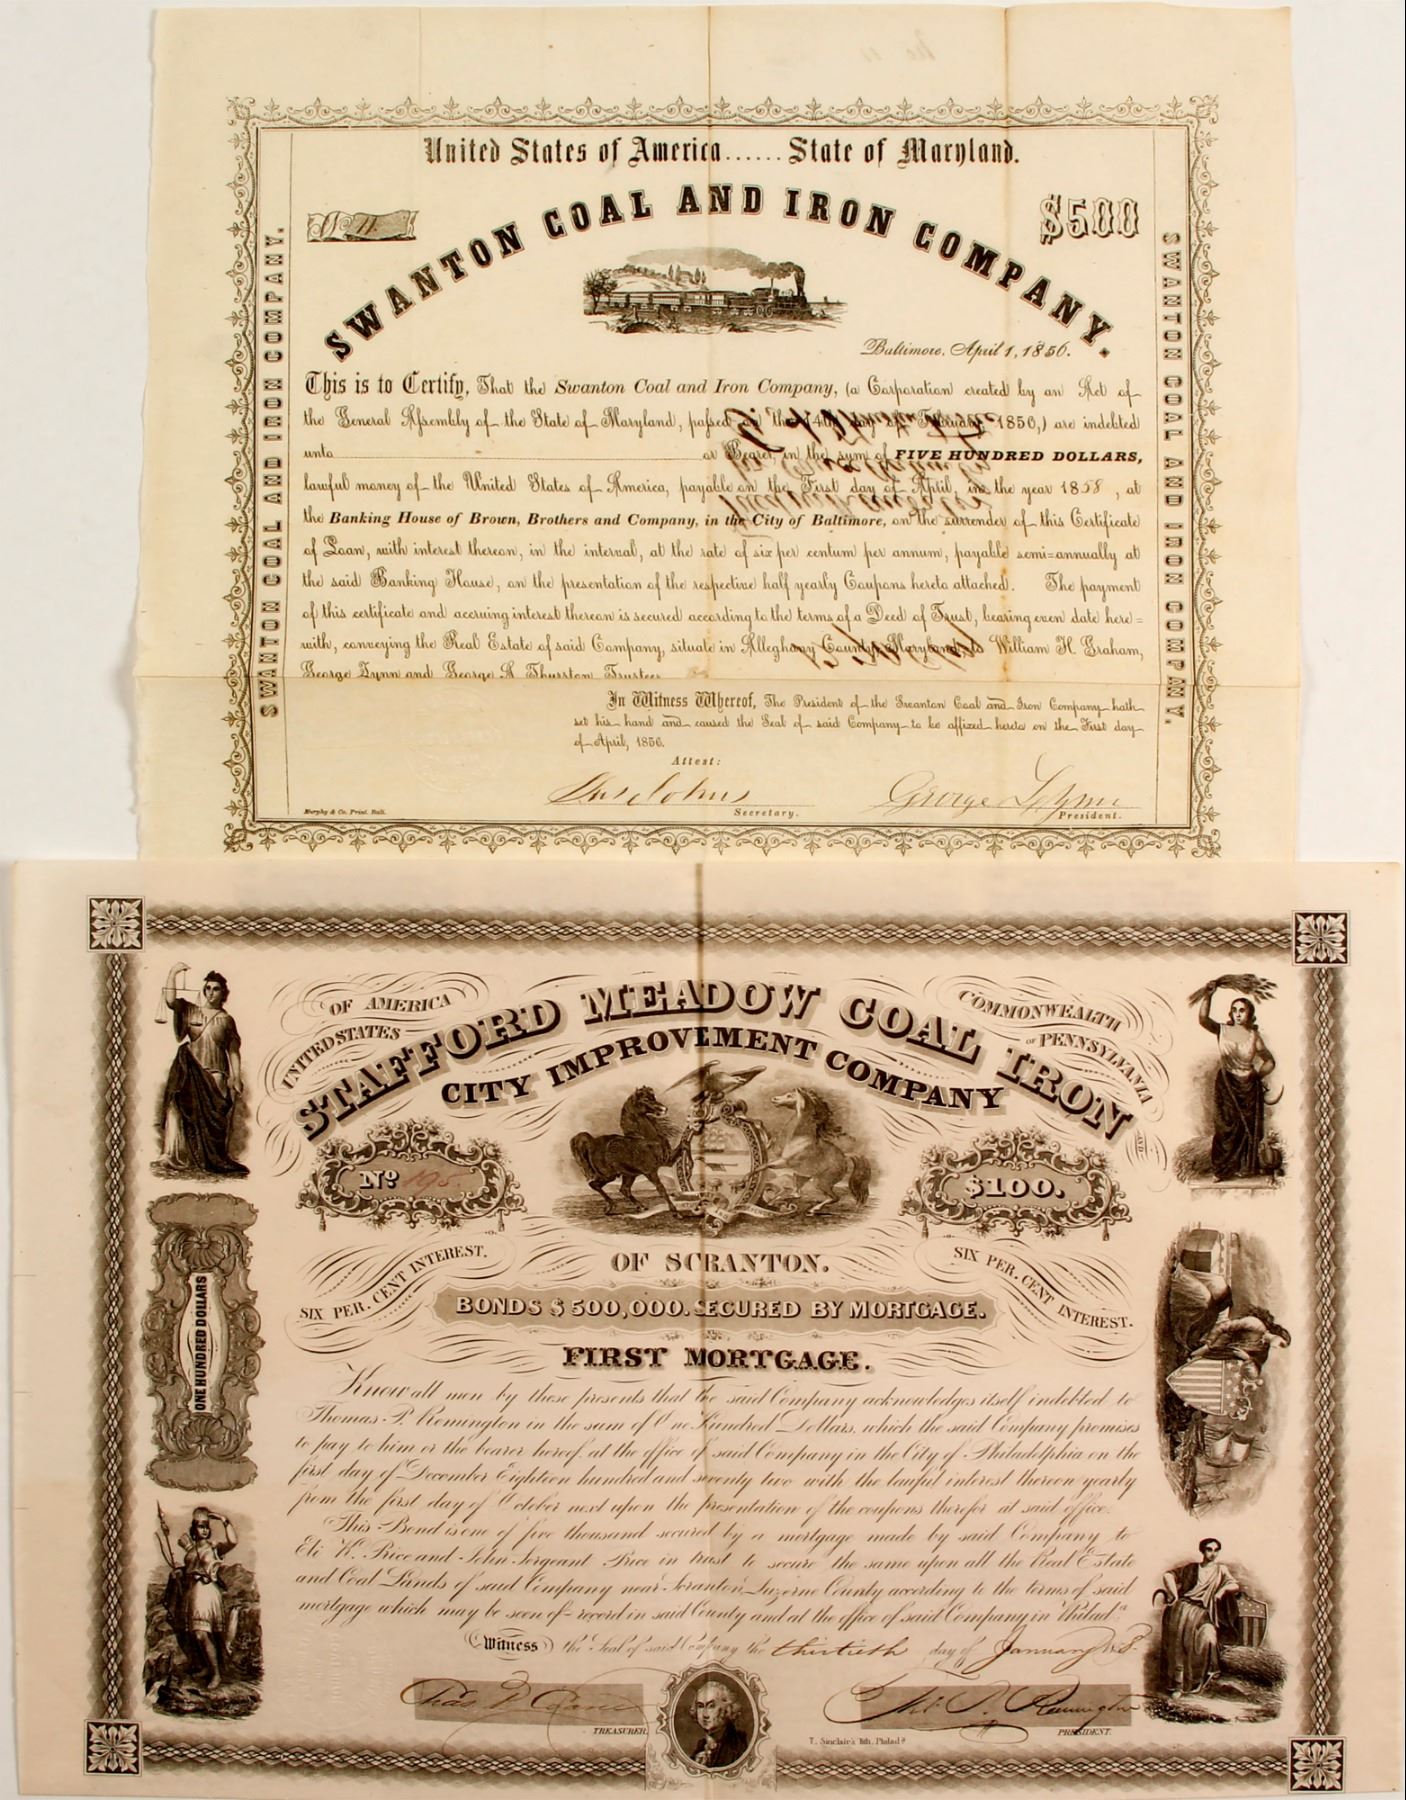 United States of America...... State of Maryland.
11.
$500
SWANTON COAL AND IRON COMPANY.
SWANTON COAL AND IRON COMPANY.
SWANTON COAL AND IRON COMPANY.
Baltimore, April 1, 1856.
This is to Certify, That the Swanton Coal and Iron Company, (a Corporation created by an Act of
the General Assembly of the State of Maryland, passed on the 14th day of 1850,) are indebted
unto or Bearer, in the sum of FIVE HUNDRED DOLLARS,
lawful money of the United States of America, payable on the First day of April, in the year 1858, at
the Banking House of Brown, Brothers and Company, in the City of Baltimore, on the surrender of this Certificate
of Loan, with interest thereon, in the interval, at the rate of six per centum per annum, payable semi=annually at
the said Banking House, on the presentation of the respective half yearly Coupons hereto attached. The payment
of this certificate and accruing interest thereon is secured according to the terms of a Deed of Trust, bearing even date here=
with, conveying the Real Estate of said Company, situate in Alleghany County Maryland, to William H. Graham,
George Lynn and George A. Thurston, Trustees
In Witness Whereof, The President of the Swanton Coal and Iron Company hath
set his hand and caused the Seal of said Company to be affixed hereto on the First day
of April, 1856.
Attest:
George Lynn
Secretary.
President.
Murphy & Co. Print. Balt.
UNITED STATES
OF AMERICA
COMMONWEALTH
OF PENNSYLVANIA
STAFFORD MEADOW COAL IRON
AND
CITY IMPROVEMENT COMPANY
No 195.
$100.
OF SCRANTON.
SIX PER. CENT INTEREST.
SIX PER. CENT INTEREST.
BONDS $500,000. SECURED BY MORTGAGE.
FIRST MORTGAGE.
ONE HUNDRED DOLLARS
Know all men by these presents that the said Company acknowledges itself indebted to
Thomas P. Remington in the sum of One Hundred Dollars, which the said Company promises
to pay to him or the bearer hereof, at the office of said Company in the City of Philadelphia on the
first day of December Eighteen hundred and seventy two with the lawful interest thereon yearly
from the first day of October next upon the presentation of the coupons therefor at said office.
This Bond is one of five thousand secured by a mortgage made by said Company to
Eli K. Price and John Sergeant Price in trust to secure the same upon all the Real Estate
and Coal Lands of said Company near Scranton, Luzerne County according to the terms of said
mortgage which may be seen of record in said County and at the office of said Company in Philada
Witness the Seal of said Company the thirtieth day of January 8
Tho. P. Remington
TREASURER.
PRESIDENT.
T. Sinclair's lith, Philada